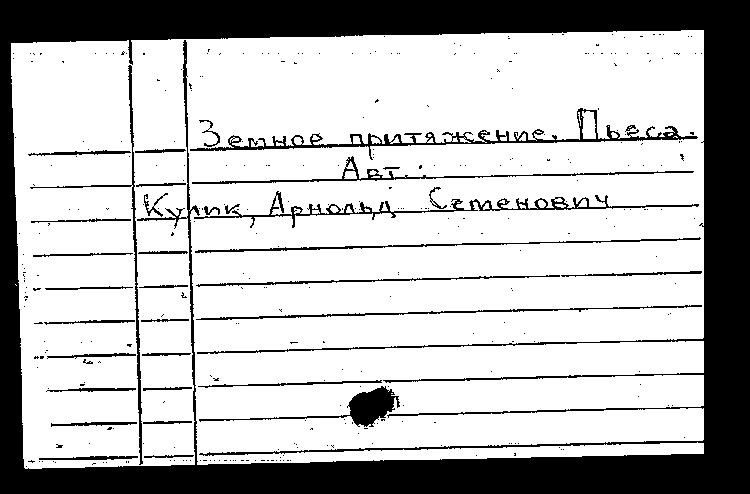 Земное притяжение. Пьеса.
Авт.:
Кулик, Арнольд Семенович